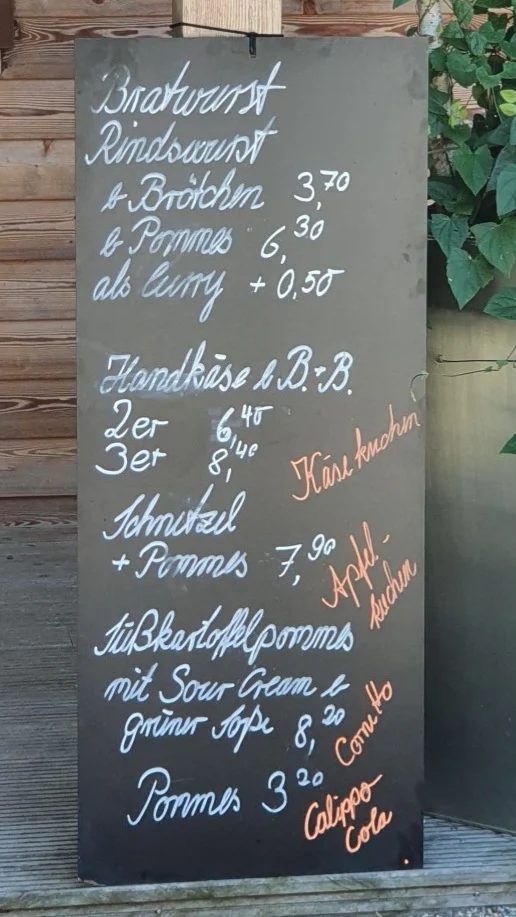 Bratwurst
Rindswurst
& Brötchen 3,70
& Pommes 6,30
als Curry + 0,50
Handkäse & B.+B.
2er 6,40
3er 8,40
Käsekuchen
Schnitzel
+ Pommes 7,90
Apfel-
kuchen
Süßkartoffelpommes
mit Sour Cream &
grüner Soße 8,20
Cornetto
Pommes 3 20
Calippo
Cola